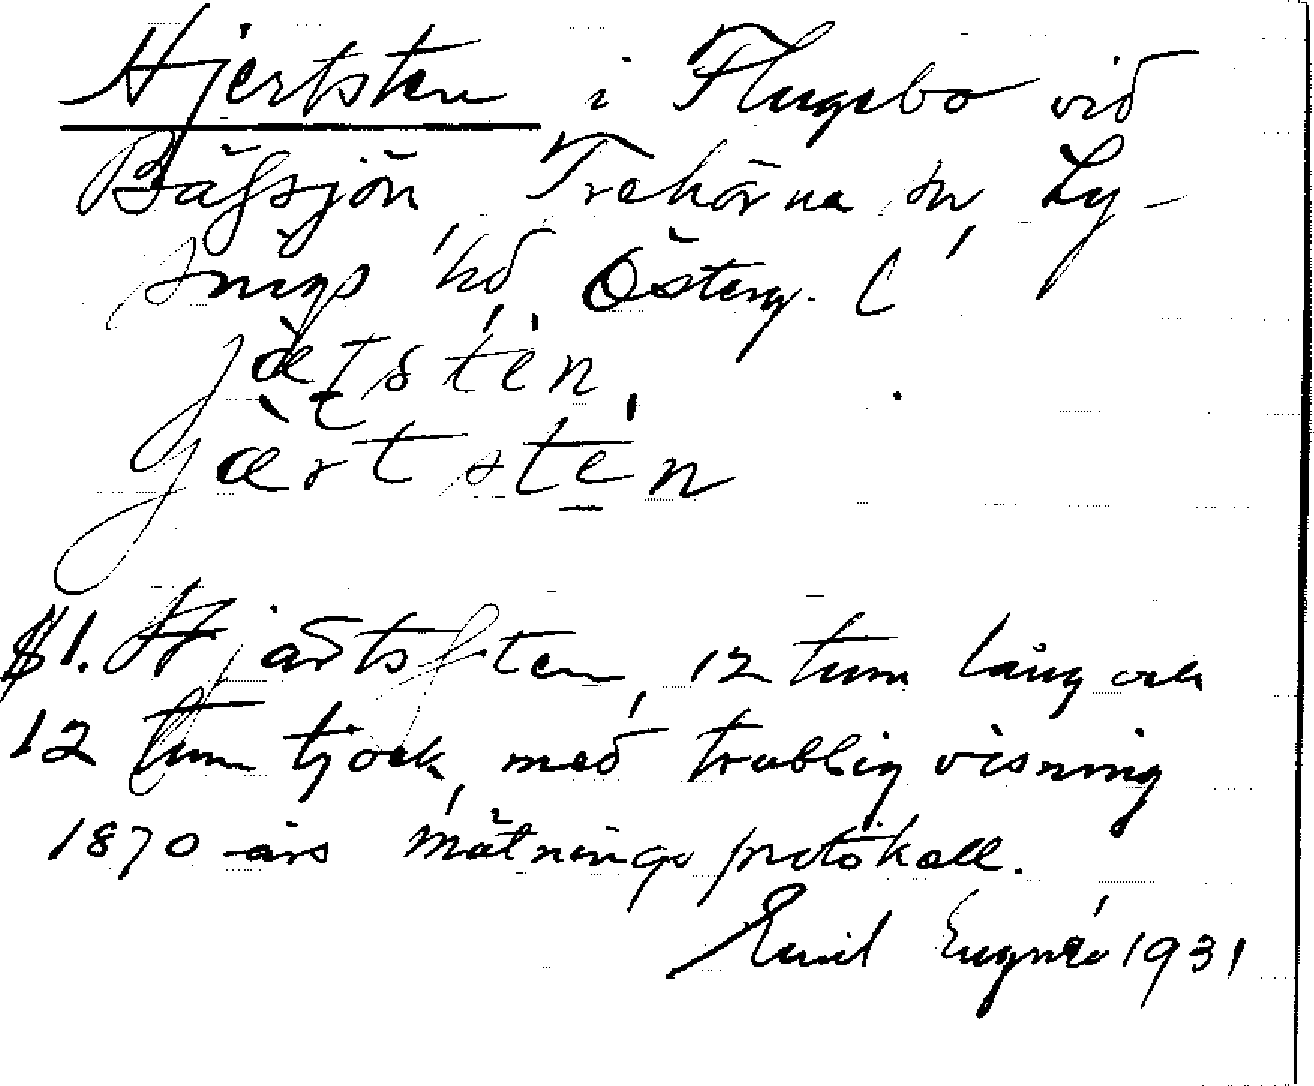 Hjertsten i Flugebo vid
Båfsjön, Trehörna sn, Ly-
sings hd, Österg. l.
jæʈstén,
jærtstén
§1. Hjärtsften, 12 tum lång och
12 tum tjock, med trablig visning
1870 års mätnings protokoll.
Emil Eugnér 1931